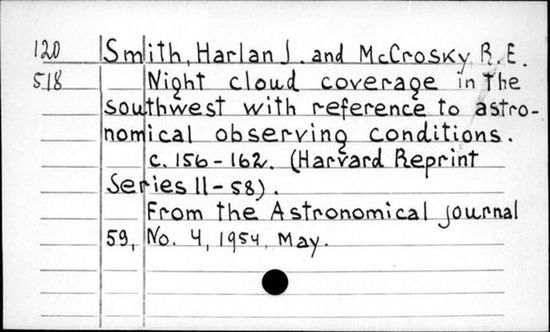 120 Smith, Harlan J. and McCrosky R. E.
518 Night cloud coverage in the
southwest with reference to astro-
nomical observing conditions.
c. 156-162. (Harvard Reprint
Series II-58).
From the Astronomical journal
59, No. 4, 1954, May.